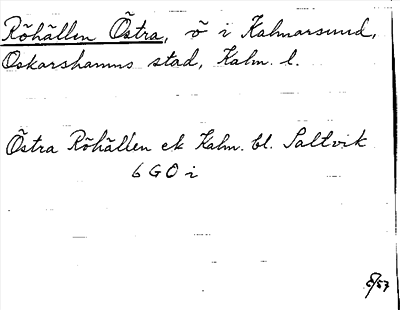 Röhällen Östra, ö i Kalmarsund,
Oskarshamns stad, Kalm. l.
Östra Röhällen ek Kalm. bl. Saltvik
6 G O i